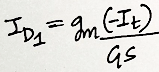 I_{D_1} = g_m \frac{(-I_t)}{GS}